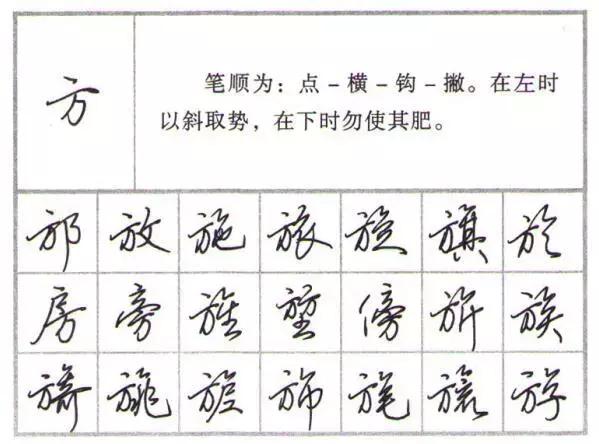 方
笔顺为：点－横－钩－撇。在左时
以斜取势，在下时勿使其肥。
邡 放 施 旅 旋 旗 於
房 旁 旌 堃 傍 旂 族
旖 旎 旆 旄